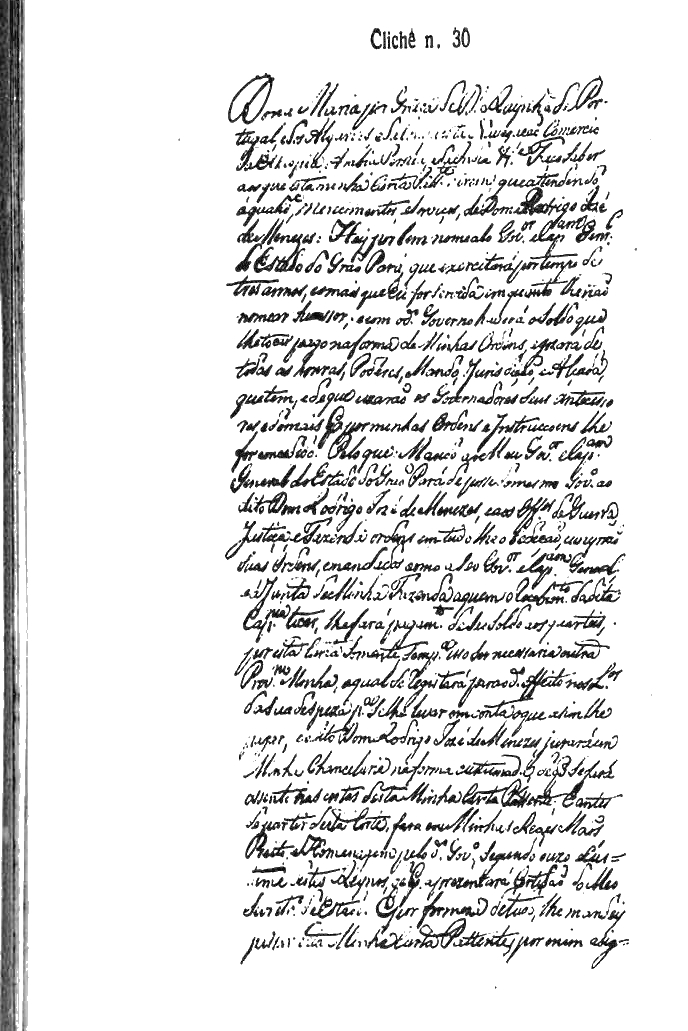 Cliché n. 30
Dona Maria por Graça de D.s Rainha de Por-
tugal, e dos Algarves e da Conquista Navegação Comercio
da Ethiopia Arabia Persia, e da India &.a Faço saber
aos que esta minha Carta Patt.e virem, que attendendo
á qualid.e, merecimentos, e serviços, de Dom Rodrigo José
de Menezes: Hey por bem nomealo Gov.or e Cap.am Gen.l
do Estado do Grão Pará, que exercitará por tempo de
tres annos, e o mais que Eu for servida em quanto lhe não
nomear sucessor; e com o d.o Governo haverá o Soldo que
lhe tocar pago na forma de Minhas Ordens, e gozará de
todas as honras, Poderes, Mando, Jurisdição, e Alçada,
que tem, e de que uzarão os Governadores seus anteces-
res e do mais q por minhas Ordens e Instrucçoens lhe
for concedido. Pelo que Mando ao Meu Gov.or e Cap.am
General do Estado do Grão Pará dê posse do mesmo Gov.o ao
dito Dom Rodrigo José de Menezes, e aos Off.es de Guerra,
Justiça e Fazenda ordeno em tudo lhe obedeção, cumprão
suas Ordens, e mandados como a seo Gov.or e Cap.am General
e á Junta de Minha Fazenda a quem o recebim.to da dita
Cap.nia tocar, lhe fará pagam.to de seo Soldo aos quarteis,
por esta Carta somente, sem p.a isso ser necessaria outra
Prov.am Minha, a qual se registará para o d.o effeito nos L.os
da sua despeza p.a se lhe levar em conta o que assim lhe
pagar, e o dito Dom Rodrigo José de Menezes jurará em
Minha Chancelaria na forma custumada de q se fará
assento nas costas desta Minha Carta Patente. E antes
de partir desta Corte, fara em Minhas Reaes Maos
Preito, e Homenagem pelo d.o Gov.o, segundo o uzo e Cus=
tume destes Reynos, de q aprezentará Certidão do Meo
Secret.o de Estado. E por firmeza de tudo, lhe mandey
passar esta Minha Carta Pattente, por mim asig=